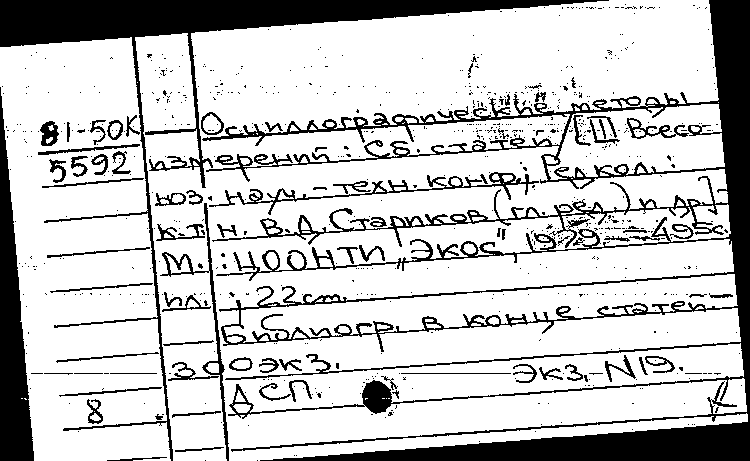 81-50К Осциллографические методы
5592 измерений: Сб. статей / [III Всесо-
юз. науч.-техн. конф.; Редкол.:
к.т.н. В.Д. Стариков (гл. ред.) и др.] -
М. : ЦООНТИ „Экос", 1979. - 495с.
ил. ; 22см.
Библиогр. в конце статей. -
300экз. Экз. N19.
ДСП.
8